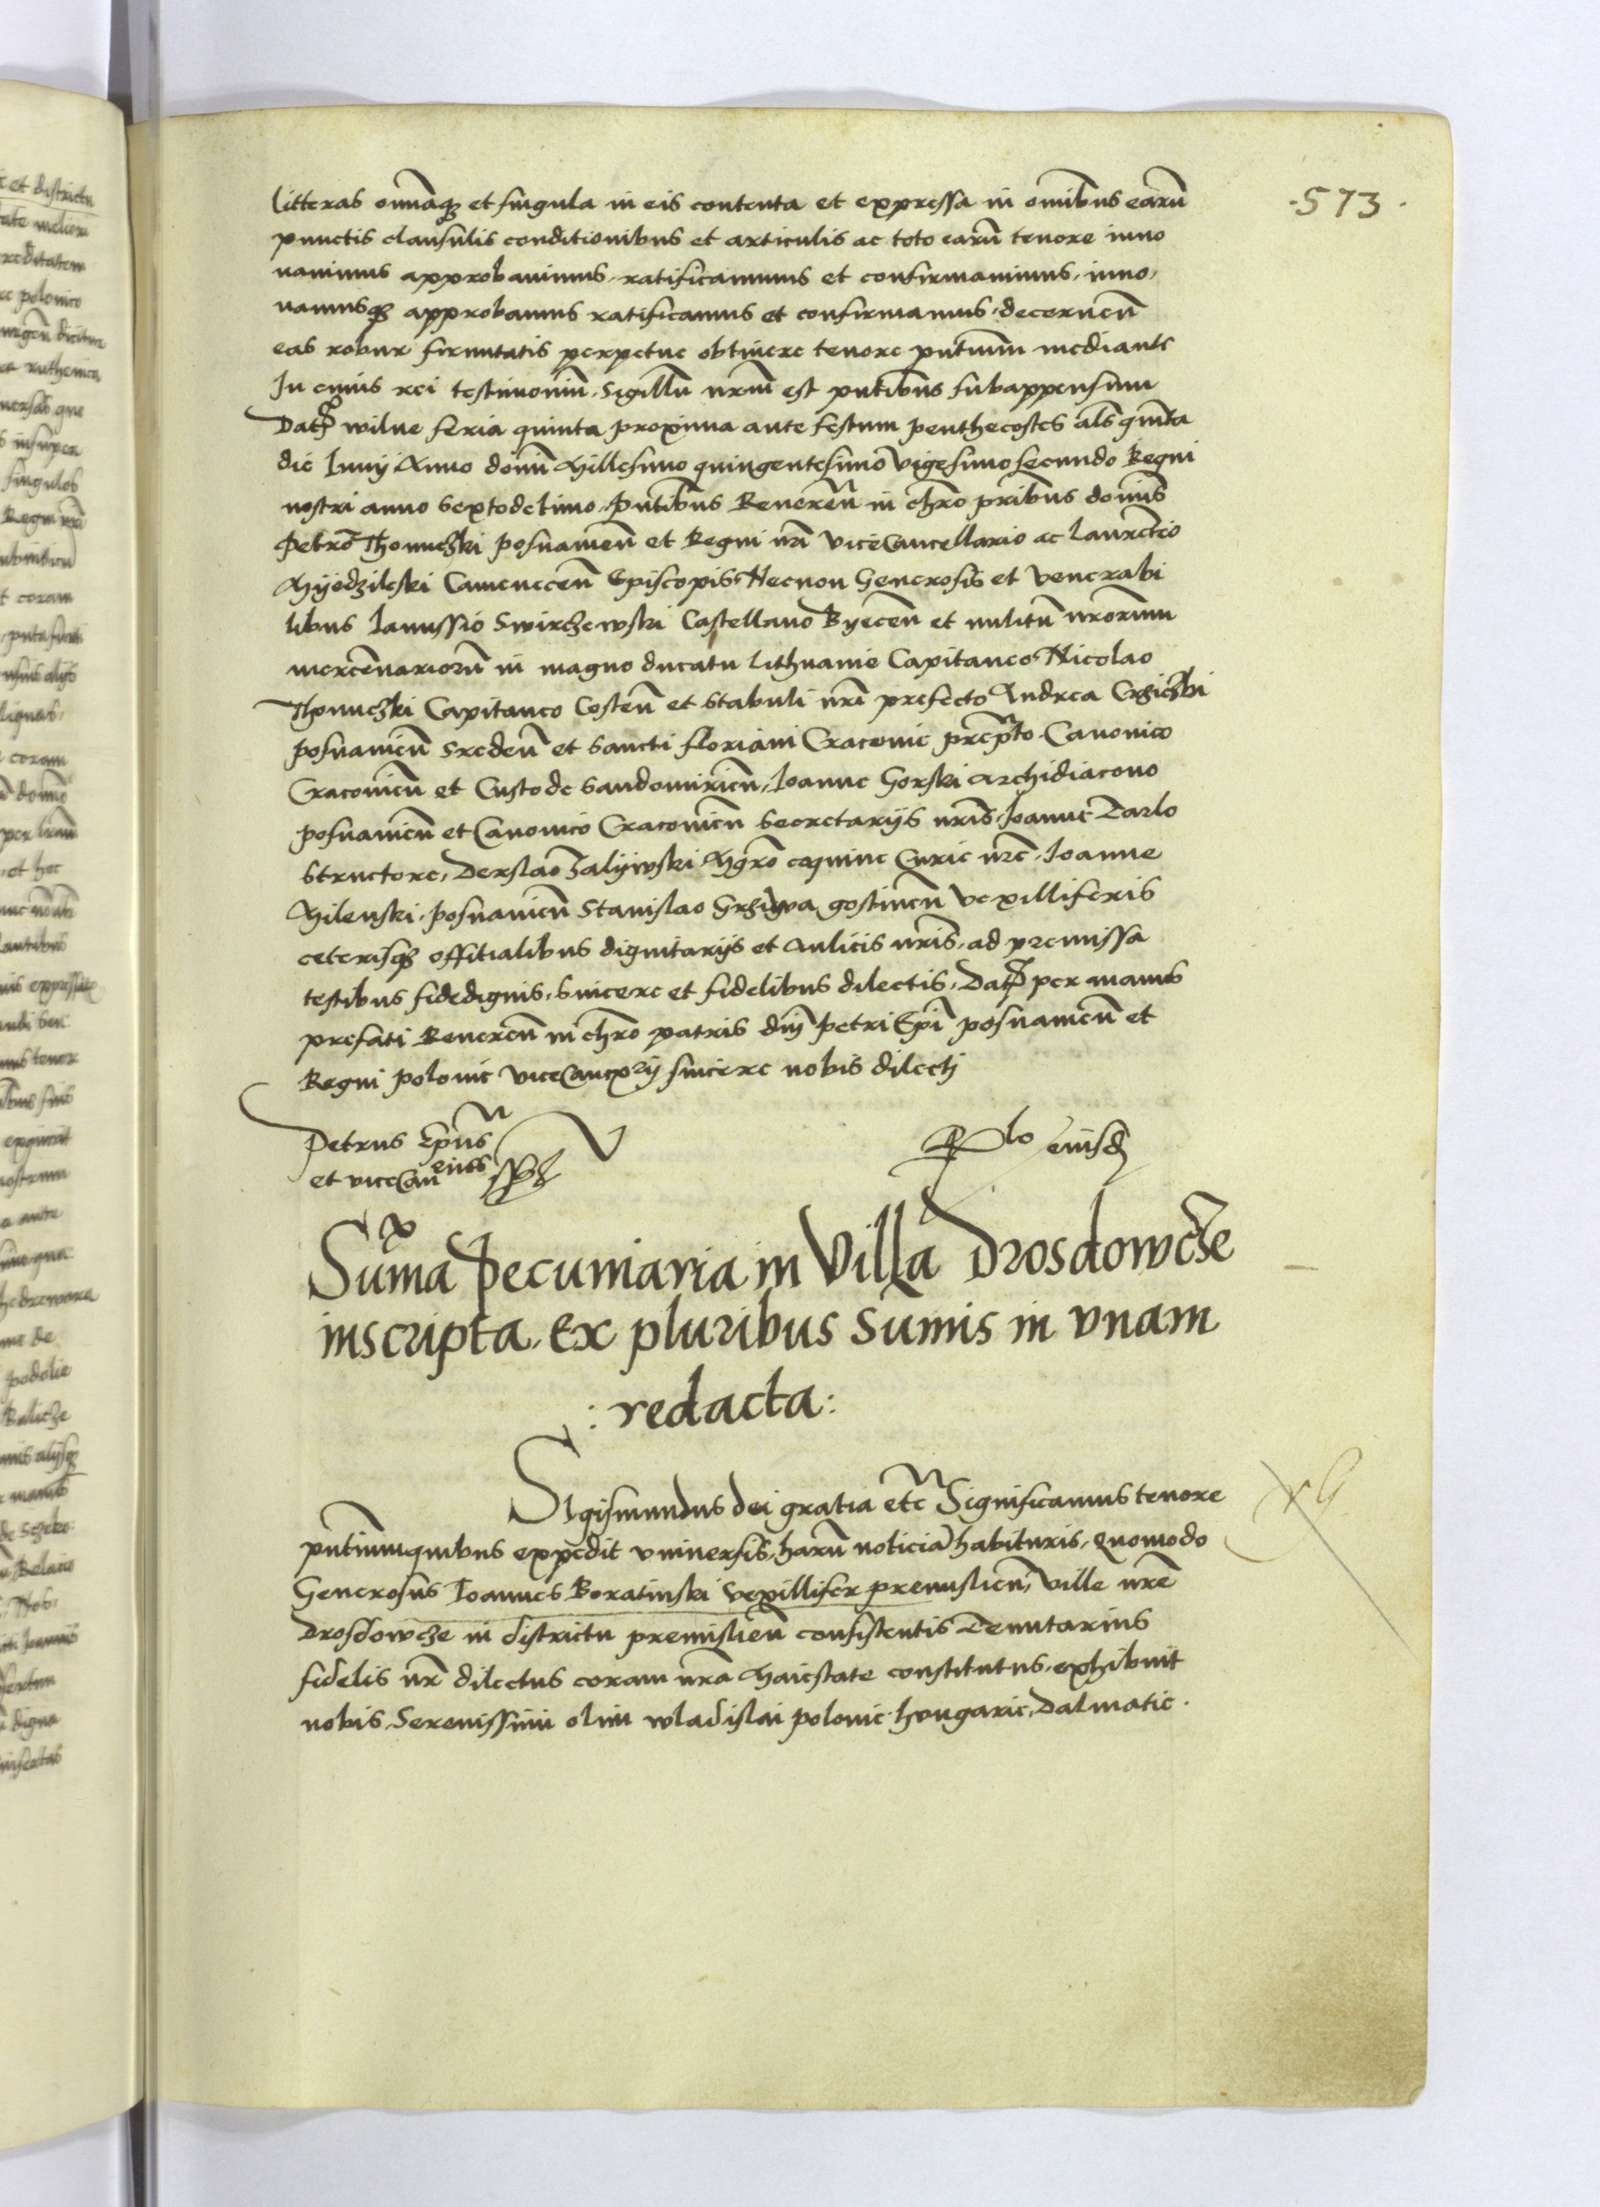 ·573·
litteras omniaq3 et singula in eis contenta et expressa in omibus earũ
punctis clausulis conditionibus et articulis ac toto earũ tenore inno
vavimus approbavimus ratificavimus et confirmavimus, inno,
vamusq3 approbamus ratificamus et confirmamus, decerneñ
eas robur firmitatis perpetue obtinere tenore pñtium mediante
In cuius rei testimoniũ, Sigillũ nrm̃ est pñtibus subappensum
Datũ wilne feria quinta proxima ante festum penthecostes als quinta
die Iunij Anno domi Millesimo quingentesimo vigesimo secundo Regni
nostri anno sextodetimo, Pñtibus Revereñ in chro pribus dominis
Petro Thomiczki posnanień et Regni nri viceCancellario ac Laurctio
Myedzileski Cameneceñ Episcopis, Necnon Generosis et venerabi
libus Ianussio Swirczewski Castellano Byeceñ et militũ nrorum
mercenariorũ in magno ducatu Lithuanie Capitaneo, Nicolao
Thomiczki Capitaneo Costeñ et stabuli nri prefecto Andrea Crziczki
posnanieñ Sredeñ et sancti floriani Cracovie prepto Canonico
Cracovieñ et Custode sandomirieñ, Ioanne Gorski archidiacono
posnanieñ et Canonico Cracovieñ secretarijs nris, Ioanne Tarlo
structore, Derslao Zalijwski Mgro coquine Curie nre, Ioanne
Milenski, posnanieñ Stanislao Grziwa gostineñ vexilliferis
ceterisq3 offitialibus dignitarijs et Aulicis nris, ad premissa
testibus fidedignis, sincere et fidelibus dilectis, Datũ per manus
prefati Revereñ in chro patris dñi Petri Epi posnanieñ et
Regni polonie viceCancrij sincere nobis dilecti
Petrus Epus
et viceCan eius sspt
Rlo eiusd
Suma Pecuniaria in Villa Drosdowcze
inscripta, Ex pluribus Sumis in vnam
: redacta :
Sigismundus dei gratia etc Significamus tenore
pñtium quibus expedit vniversis, harũ noticiã habituris, Quomodo
Generosus Ioannes Boratinski vexillifer premislieñ, Ville nre
Drosdowcze in districtu premislieñ consistentis Tenutarius
fidelis nr dilectus coram nra Maiestate constitutus, exhibuit
nobis, Serenissimi olim wladislai polonie hungarie, Dalmatie